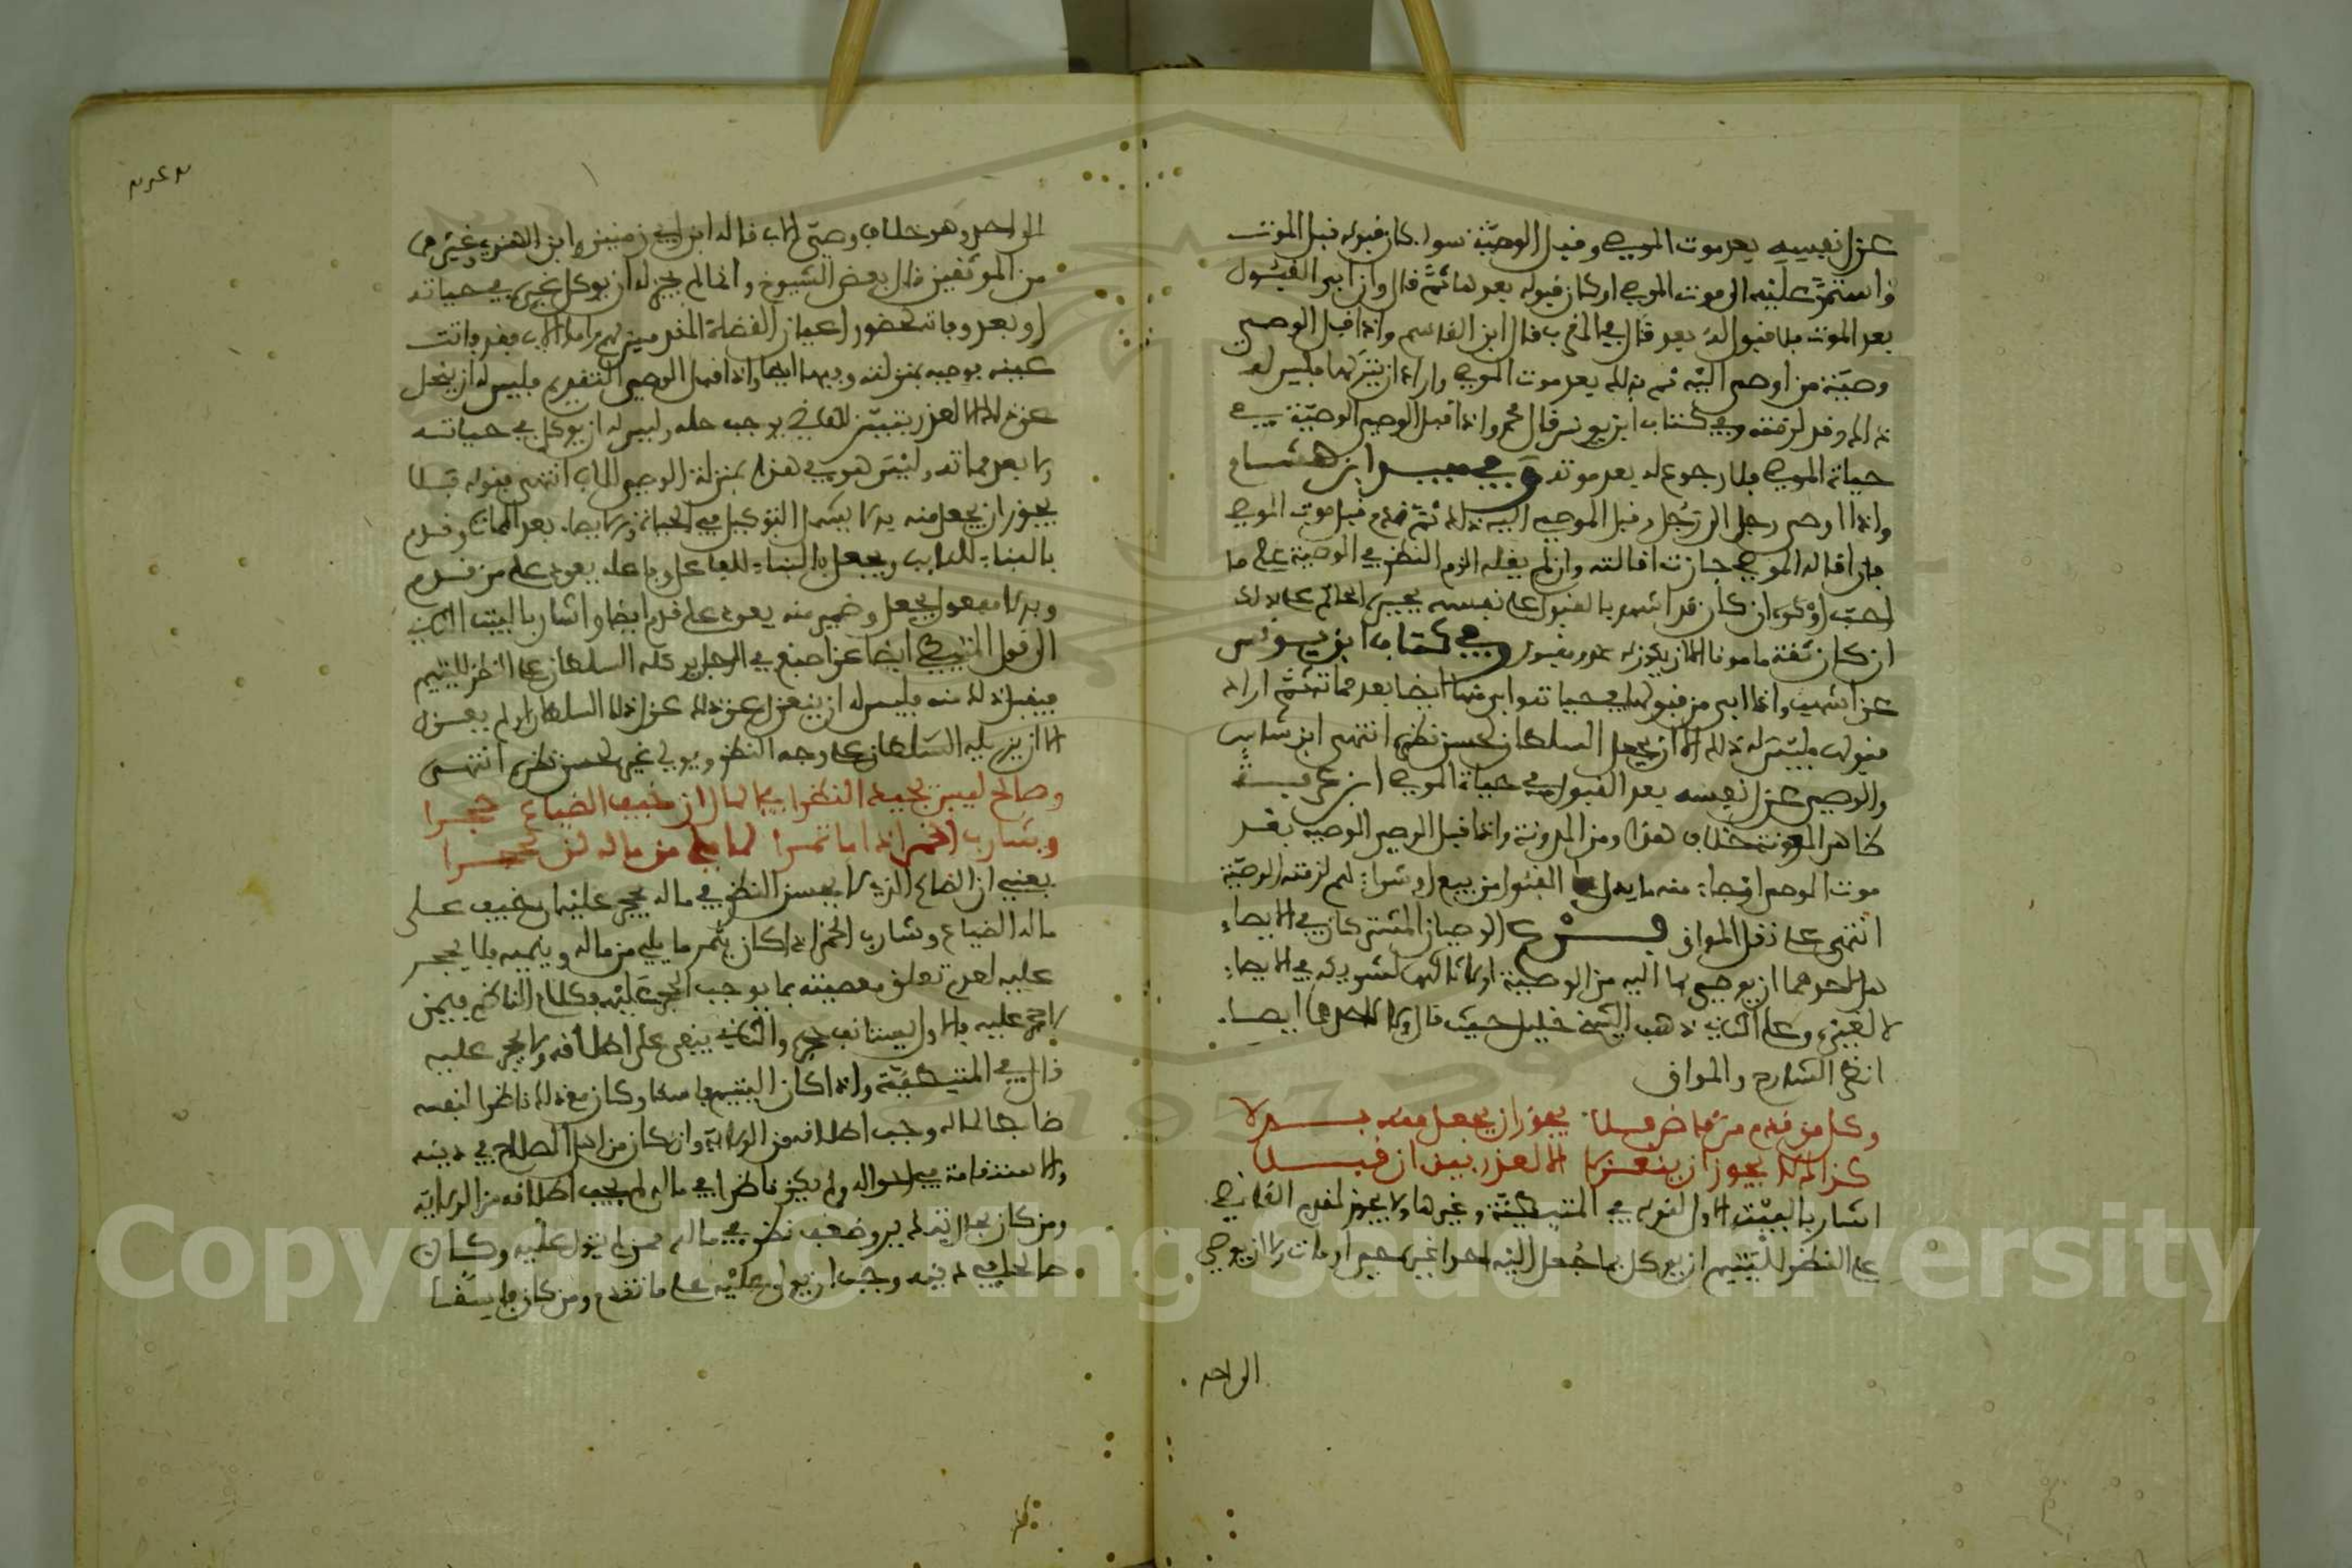 عزل نفسه بعد موت الموصي وقبل الوصية سواء كان قبوله قبل الموت
واستمر عليه الى موت الموصي او كان قبوله بعدها ثم قال وان ابى القبول
بعد الموت فلا قبول له بعد قال في المقرب قال ابن القاسم واذا قبل الوصي
وصية من اوصى اليه ثم بدا له بعد موت الموصي واراد ان يتركها فليس له
ذلك وقد لزمته وفي كتاب ابن يونس قال محمد واذا قبل الوصي الوصية في
حياة الموصي فلا رجوع له بعد موته وفي مفيد ابن هشام
واذا اوصى رجل الى رجل وقبل الموصى اليه ذلك ثم ندم قبل موت الموصي
فان اقاله الموصي جازت اقالته وان لم يقله الزم النظر في الوصية على ما
احب او كره ان كان قد اشهد بالقبول على نفسه يجبره الحاكم على ذلك
ان كان ثقة مامونا الا ان يكون له عذر وفي كتاب ابن يونس
عن اشهب واذا ابى من قبولها في حياته وابى منها ايضا بعد مماته ثم اراد
قبولها فليس له ذلك الا ان يجعل السلطان لحسن نظره انتهى ابن شاس
والوصي عزل نفسه بعد القبول في حياة الموصي ابن عرفة
ظاهر المعونة خلاف هذا ومن المدونة واذا قبل الوصي الوصية بعد
موت الموصي او جاء منه ما يدل على القبول من بيع او شراء لهم لزمته الوصية
انتهى على نقل المواق فرع الوصيان المشتركان في الايصاء
هل لاحدهما ان يوصي بما اليه من الوصية او لا ثالثها لشريكه في الايصاء
لا لغيره وعلى الثاني ذهب الشيخ خليل حيث قال ولا لاحدهما ايصاء
انظر الشارح والمواق
وكل من قدم من قاض فلا يجوز ان يجعل منه بدلا
كذلك لا يجوز ان ينعزلا الا لعذر بين ان قبلا
اشار بالبيت الاول لقوله في المتيطية وغيرها ولا يجوز لمقدم القاضي
على النظر لليتيم ان يوكل بما جعل اليه احدا غيره حيي او مات ولا ان يوصي
الى احد
الى احد وهو خلاف وصي الاب قاله ابن ابي زمنين وابن الهندي وغيرهما
من الموثقين قال بعض الشيوخ وانما لم يجز له ان يوكل غيره في حياته
او بعد وفاته لحضور اعيان القضاة المقدمين لهم واما الاب فقد ماتت
عينه بوصيه بمنزلته وفيها ايضا واذا قبل الوصي التقديم فليس له ان ينحل
عن ذلك الا لعذر يتبين للقاضي يوجب حله وليس له ان يوكل في حياته
ولا بعد مماته وليس هو في هذا بمنزلة الوصي للاب انتهى فقوله فلا
يجوز ان يجعل منه بدلا يشمل التوكيل في الحياة والايصاء بعد الممات وقدم
بالبناء للنائب ويجعل بالبناء للفاعل وفاعله يعود على من قدم
وبدلا مفعول يجعل وضمير منه يعود على قدم ايضا واشار بالبيت الثاني
الى قول المتيطي ايضا عن اصبغ في الرجل يوكله السلطان على النظر لليتيم
فيقبل ذلك منه فليس له ان ينعزل عن ذلك عزل ذلك السلطان او لم يعزل
الا ان يزيله السلطان على وجه النظر ويولي غيره لحسن نظره انتهى
وصالح ليس يجيد النظرا في المال ان خيف الضياع حجرا
وشارب الخمر اذا ما ثمرا لما يلي من ماله لن يحجرا
يعني ان الصالح الذي لا يحسن النظر في ماله يحجر عليه ان خيف على
ماله الضياع وشارب الخمر اذا كان يثمر ما يلي من ماله وينميه فلا يحجر
عليه لعدم تعلق معصيته بما يوجب الحجر عليه وكلام الناظم فيمن
لا حجر عليه فالاول يستانف حجره والثاني يبقى على اطلاقه ولا يحجر عليه
قال في المتيطية واذا كان اليتيم فاسقا وكان مع ذلك ناظرا لنفسه
ضابطا لماله وجب اطلاقه من الولاية وان كان من اهل الصلاح في دينه
والاستقامة في احواله ولم يكن ناظرا في ماله لم يجب اطلاقه من الولاية
ومن كان بحال يتم لم يبر وضعف نظره في ماله ممن لم يول عليه وكان
صالحا في دينه وجب ان يولى عليه على ما تقدم ومن كان فاسقا
Copyright © King Saud University
1957